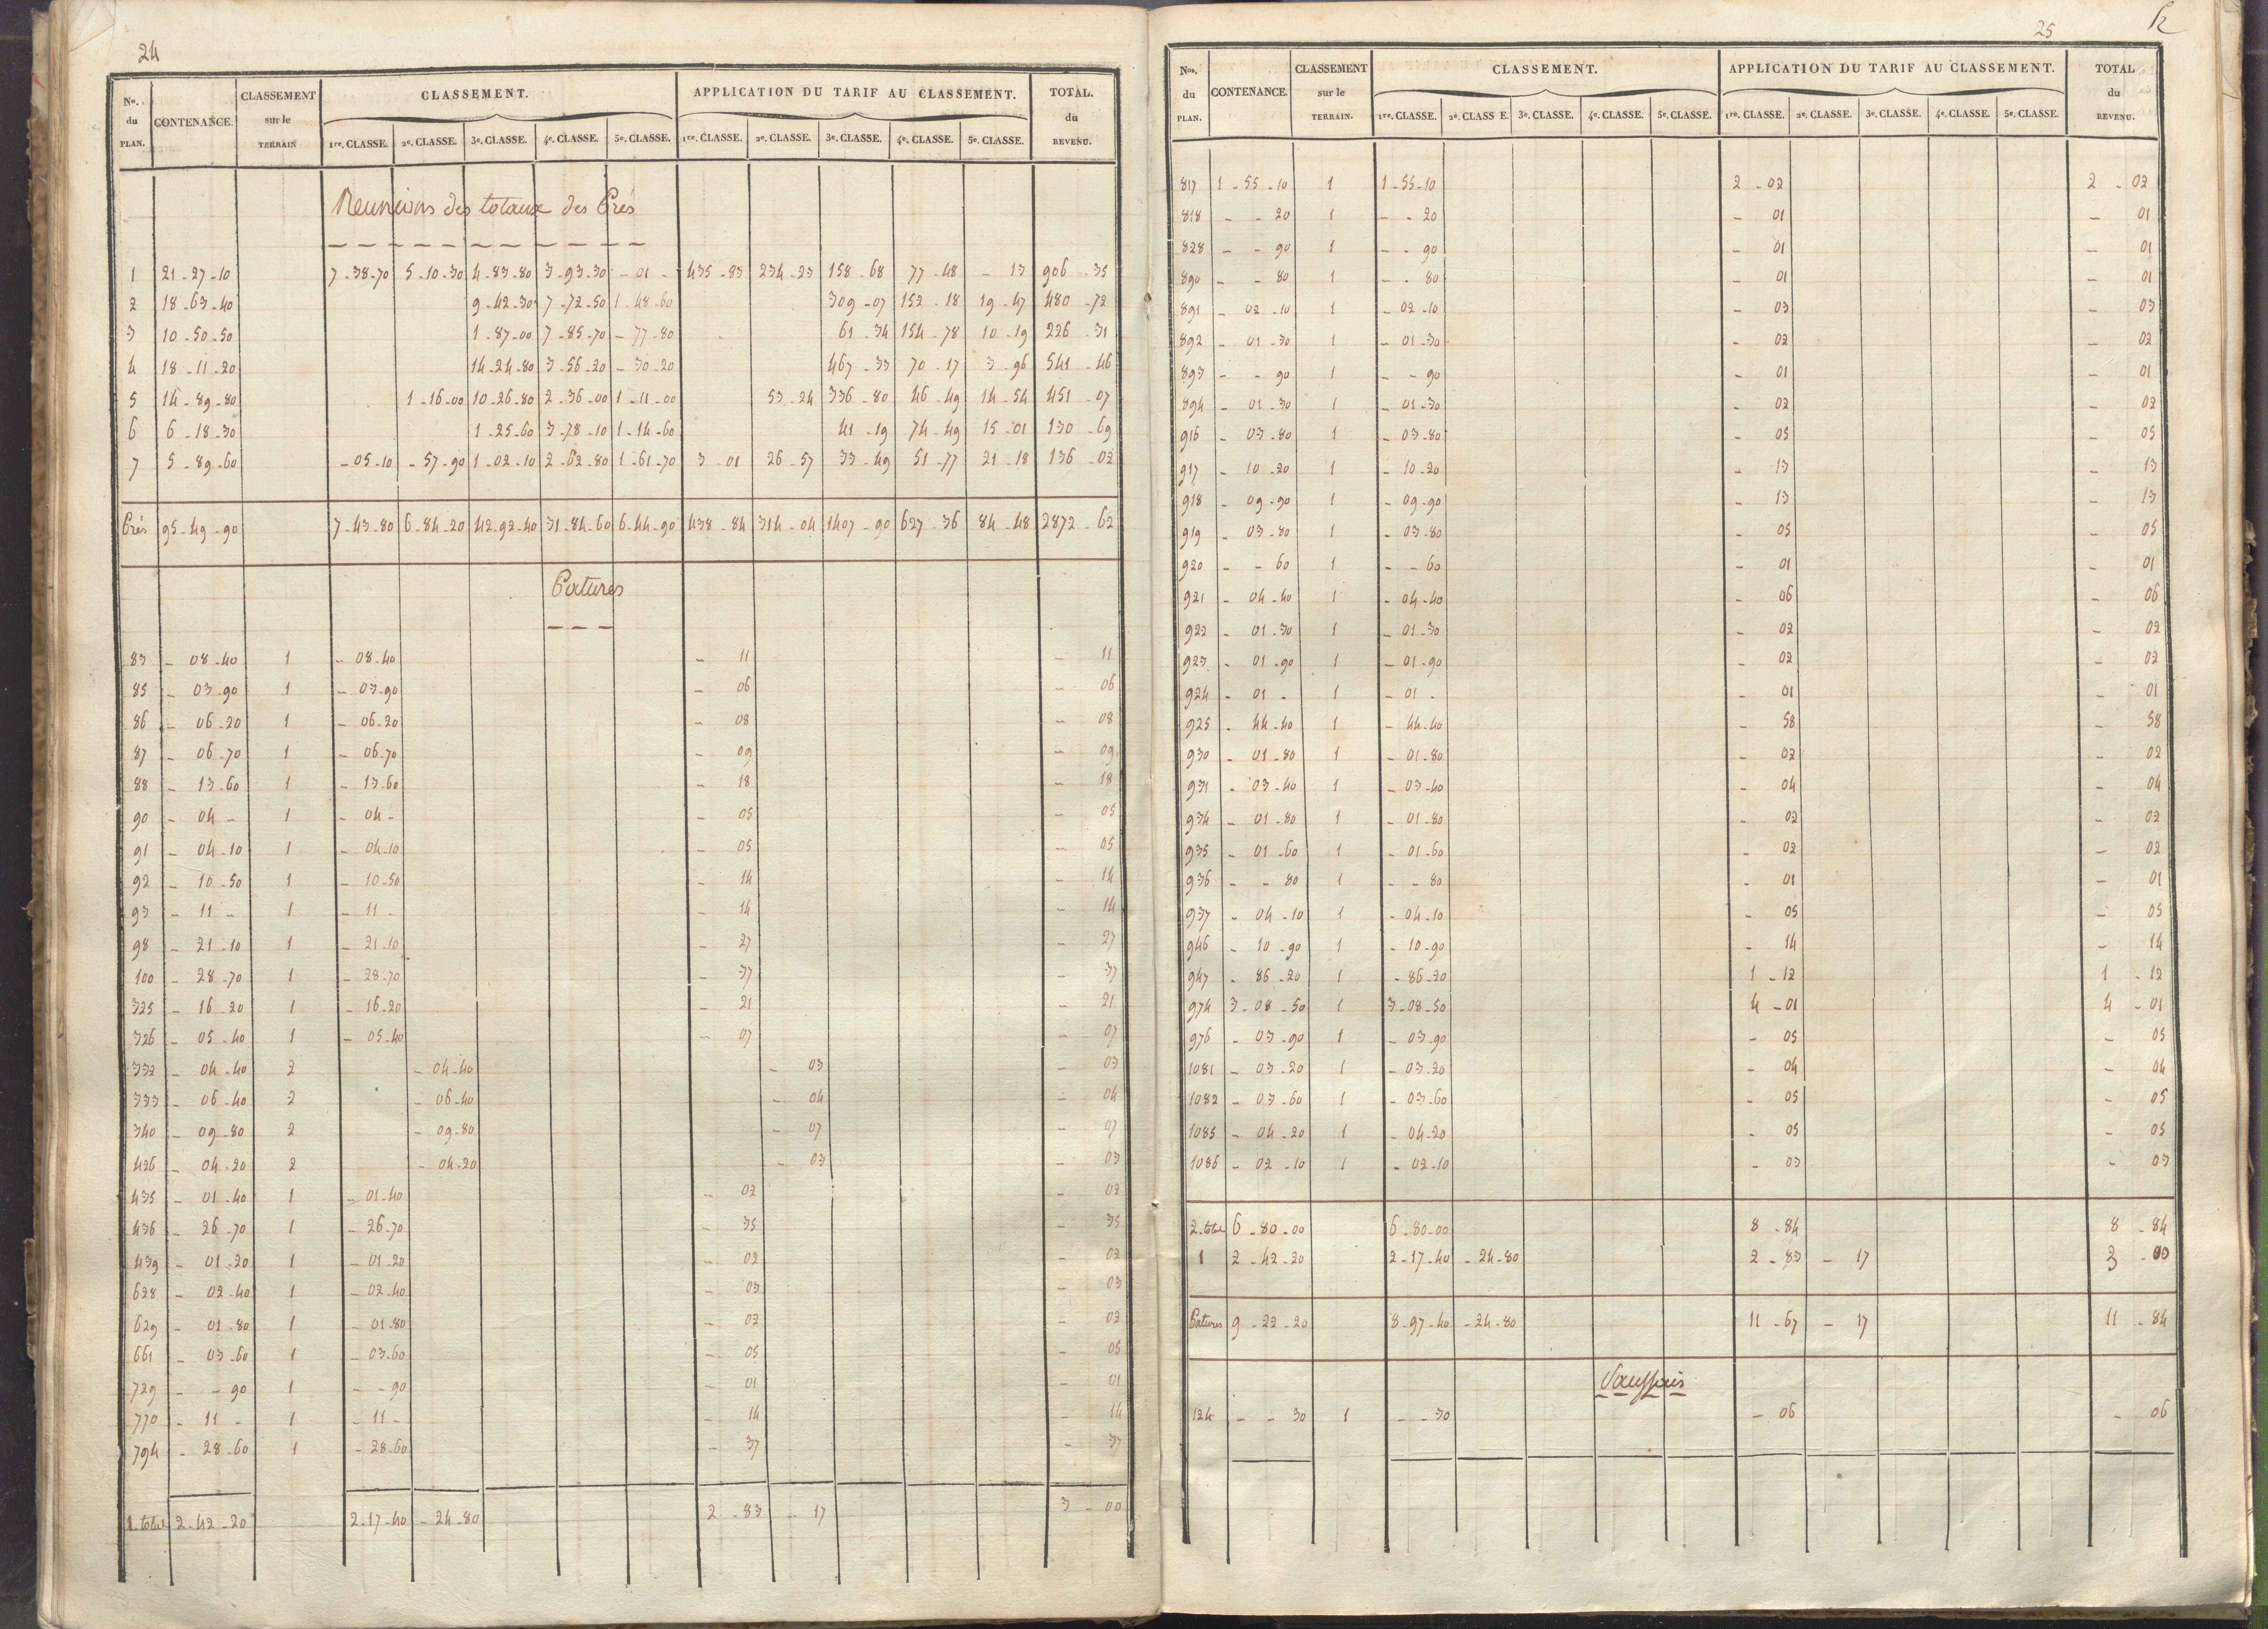 24
No. du PLAN. CONTENANCE. CLASSEMENT sur le TERRAIN CLASSEMENT. APPLICATION DU TARIF AU CLASSEMENT. TOTAL. du REVENU.
1re. CLASSE. 2e. CLASSE. 3e. CLASSE. 4e. CLASSE. 5e. CLASSE. 1re. CLASSE. 2e. CLASSE. 3e. CLASSE. 4e. CLASSE. 5e. CLASSE.
Reunions des totaux des Prés
1 21-27-10 7-38-70 5-10-30 4-83-80 3-93-30 -01- 435-83 234-23 158-68 77-48 -13 906-35
2 18-63-40 9-42-30 7-72-50 1-48-60 309-07 152-18 19-47 480-72
3 10-50-50 1-87-00 7-85-70 -77-80 61-34 154-78 10-19 226-31
4 18-11-20 14-24-80 3-56-20 -30-20 467-33 70-17 3-96 541-46
5 14-89-80 1-16-00 10-26-80 2-36-00 1-11-00 53-24 336-80 46-49 14-54 451-07
6 6-18-30 1-25-60 3-78-10 1-14-60 41-19 74-49 15-01 130-69
7 5-89-60 -05-10 -57-90 1-02-10 2-62-80 1-61-70 3-01 26-57 33-49 51-77 21-18 136-02
Prés 95-49-90 7-43-80 6-84-20 42-92-40 31-84-60 6-44-90 438-84 314-04 1407-90 627-36 84-48 2872-62
Patures
83 -08-40 1 -08-40 -11 -11
85 -03-90 1 -03-90 -06 -06
86 -06-20 1 -06-20 -08 -08
87 -06-70 1 -06-70 -09 -09
88 -13-60 1 -13-60 -18 -18
90 -04- 1 -04- -05 -05
91 -04-10 1 -04-10 -05 -05
92 -10-50 1 -10-50 -14 -14
93 -11- 1 -11- -14 -14
98 -21-10 1 -21-10 -27 -27
100 -28-70 1 -28-70 -37 -37
325 -16-20 1 -16-20 -21 -21
326 -05-40 1 -05-40 -07 -07
332 -04-40 2 -04-40 -03 -03
333 -06-40 2 -06-40 -04 -04
340 -09-80 2 -09-80 -07 -07
426 -04-20 2 -04-20 -03 -03
435 -01-40 1 -01-40 -02 -02
436 -26-70 1 -26-70 -35 -35
439 -01-20 1 -01-20 -02 -02
628 -02-40 1 -02-40 -03 -03
629 -01-80 1 -01-80 -02 -02
661 -03-60 1 -03-60 -05 -05
729 - -90 1 - -90 -01 -01
770 -11- 1 -11- -14 -14
794 -28-60 1 -28-60 -37 -37
1. total 2-42-20 2-17-40 -24-80 2-83 -17 3-00
25
Nos. du PLAN. CONTENANCE. CLASSEMENT sur le TERRAIN. CLASSEMENT. APPLICATION DU TARIF AU CLASSEMENT. TOTAL du REVENU.
1re. CLASSE. 2e. CLASS E. 3e. CLASSE. 4e. CLASSE. 5e. CLASSE. 1re. CLASSE. 2e. CLASSE. 3e. CLASSE. 4e. CLASSE. 5e. CLASSE.
817 1-55-10 1 1-55-10 2-02 2-02
818 - -20 1 - -20 -01 -01
828 - -90 1 - -90 -01 -01
890 - -80 1 - -80 -01 -01
891 -02-10 1 -02-10 -03 -03
892 -01-30 1 -01-30 -02 -02
893 - -90 1 - -90 -01 -01
894 -01-30 1 -01-30 -02 -02
916 -03-80 1 -03-80 -05 -05
917 -10-20 1 -10-20 -13 -13
918 -09-90 1 -09-90 -13 -13
919 -03-80 1 -03-80 -05 -05
920 - -60 1 - -60 -01 -01
921 -04-40 1 -04-40 -06 -06
922 -01-30 1 -01-30 -02 -02
923 -01-90 1 -01-90 -02 -02
924 -01- 1 -01- -01 -01
925 -44-40 1 -44-40 -58 -58
930 -01-80 1 -01-80 -02 -02
931 -03-40 1 -03-40 -04 -04
934 -01-80 1 -01-80 -02 -02
935 -01-60 1 -01-60 -02 -02
936 - -80 1 - -80 -01 -01
937 -04-10 1 -04-10 -05 -05
946 -10-90 1 -10-90 -14 -14
947 -86-20 1 -86-20 1-12 1-12
974 3-08-50 1 3-08-50 4-01 4-01
976 -03-90 1 -03-90 -05 -05
1081 -03-20 1 -03-20 -04 -04
1082 -03-60 1 -03-60 -05 -05
1085 -04-20 1 -04-20 -05 -05
1086 -02-10 1 -02-10 -03 -03
2. total 6-80-00 6-80-00 8-84 8-84
1 2-42-20 2-17-40 -24-80 2-83 -17 3-00
Patures 9-22-20 8-97-40 -24-80 11-67 -17 11-84
Saussais
124 - -30 1 - -30 -06 -06